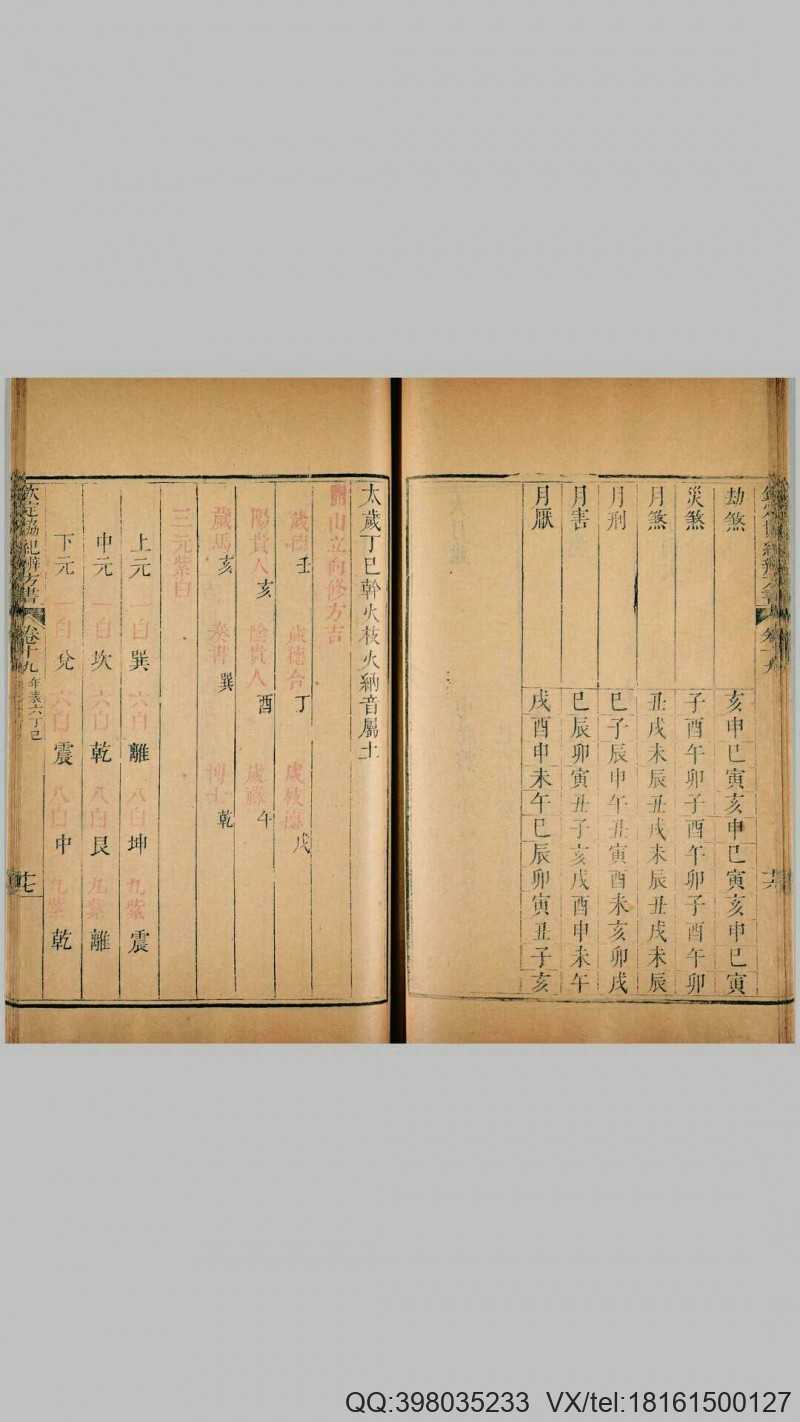 劫煞 亥申巳寅亥申巳寅亥申巳寅
災煞 子酉午卯子酉午卯子酉午卯
月煞 丑戌未辰丑戌未辰丑戌未辰
月刑 巳子辰申午丑寅酉未亥卯戌
月害 巳辰卯寅丑子亥戌酉申未午
月厭 戌酉申未午巳辰卯寅丑子亥
太歲丁巳幹火枝火納音屬土
開山立向修方吉
歲德 壬 歲德合 丁 歲枝德 戊
陽貴人 亥 陰貴人 酉 歲祿 午
歲馬 亥 奏書 巽 博士 乾
三元紫白
上元 一白 巽 六白 離 八白 坤 九紫 震
中元 一白 坎 六白 乾 八白 艮 九紫 離
下元 一白 兌 六白 震 八白 中 九紫 乾
欽定協紀辨方書 卷十九 年表六丁巳 十七
QQ:398035233 VX/tel:18161500127